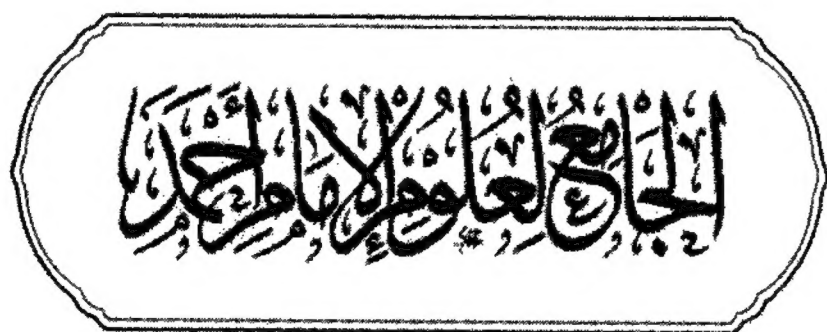 الجامع لعلوم الإمام أحمد